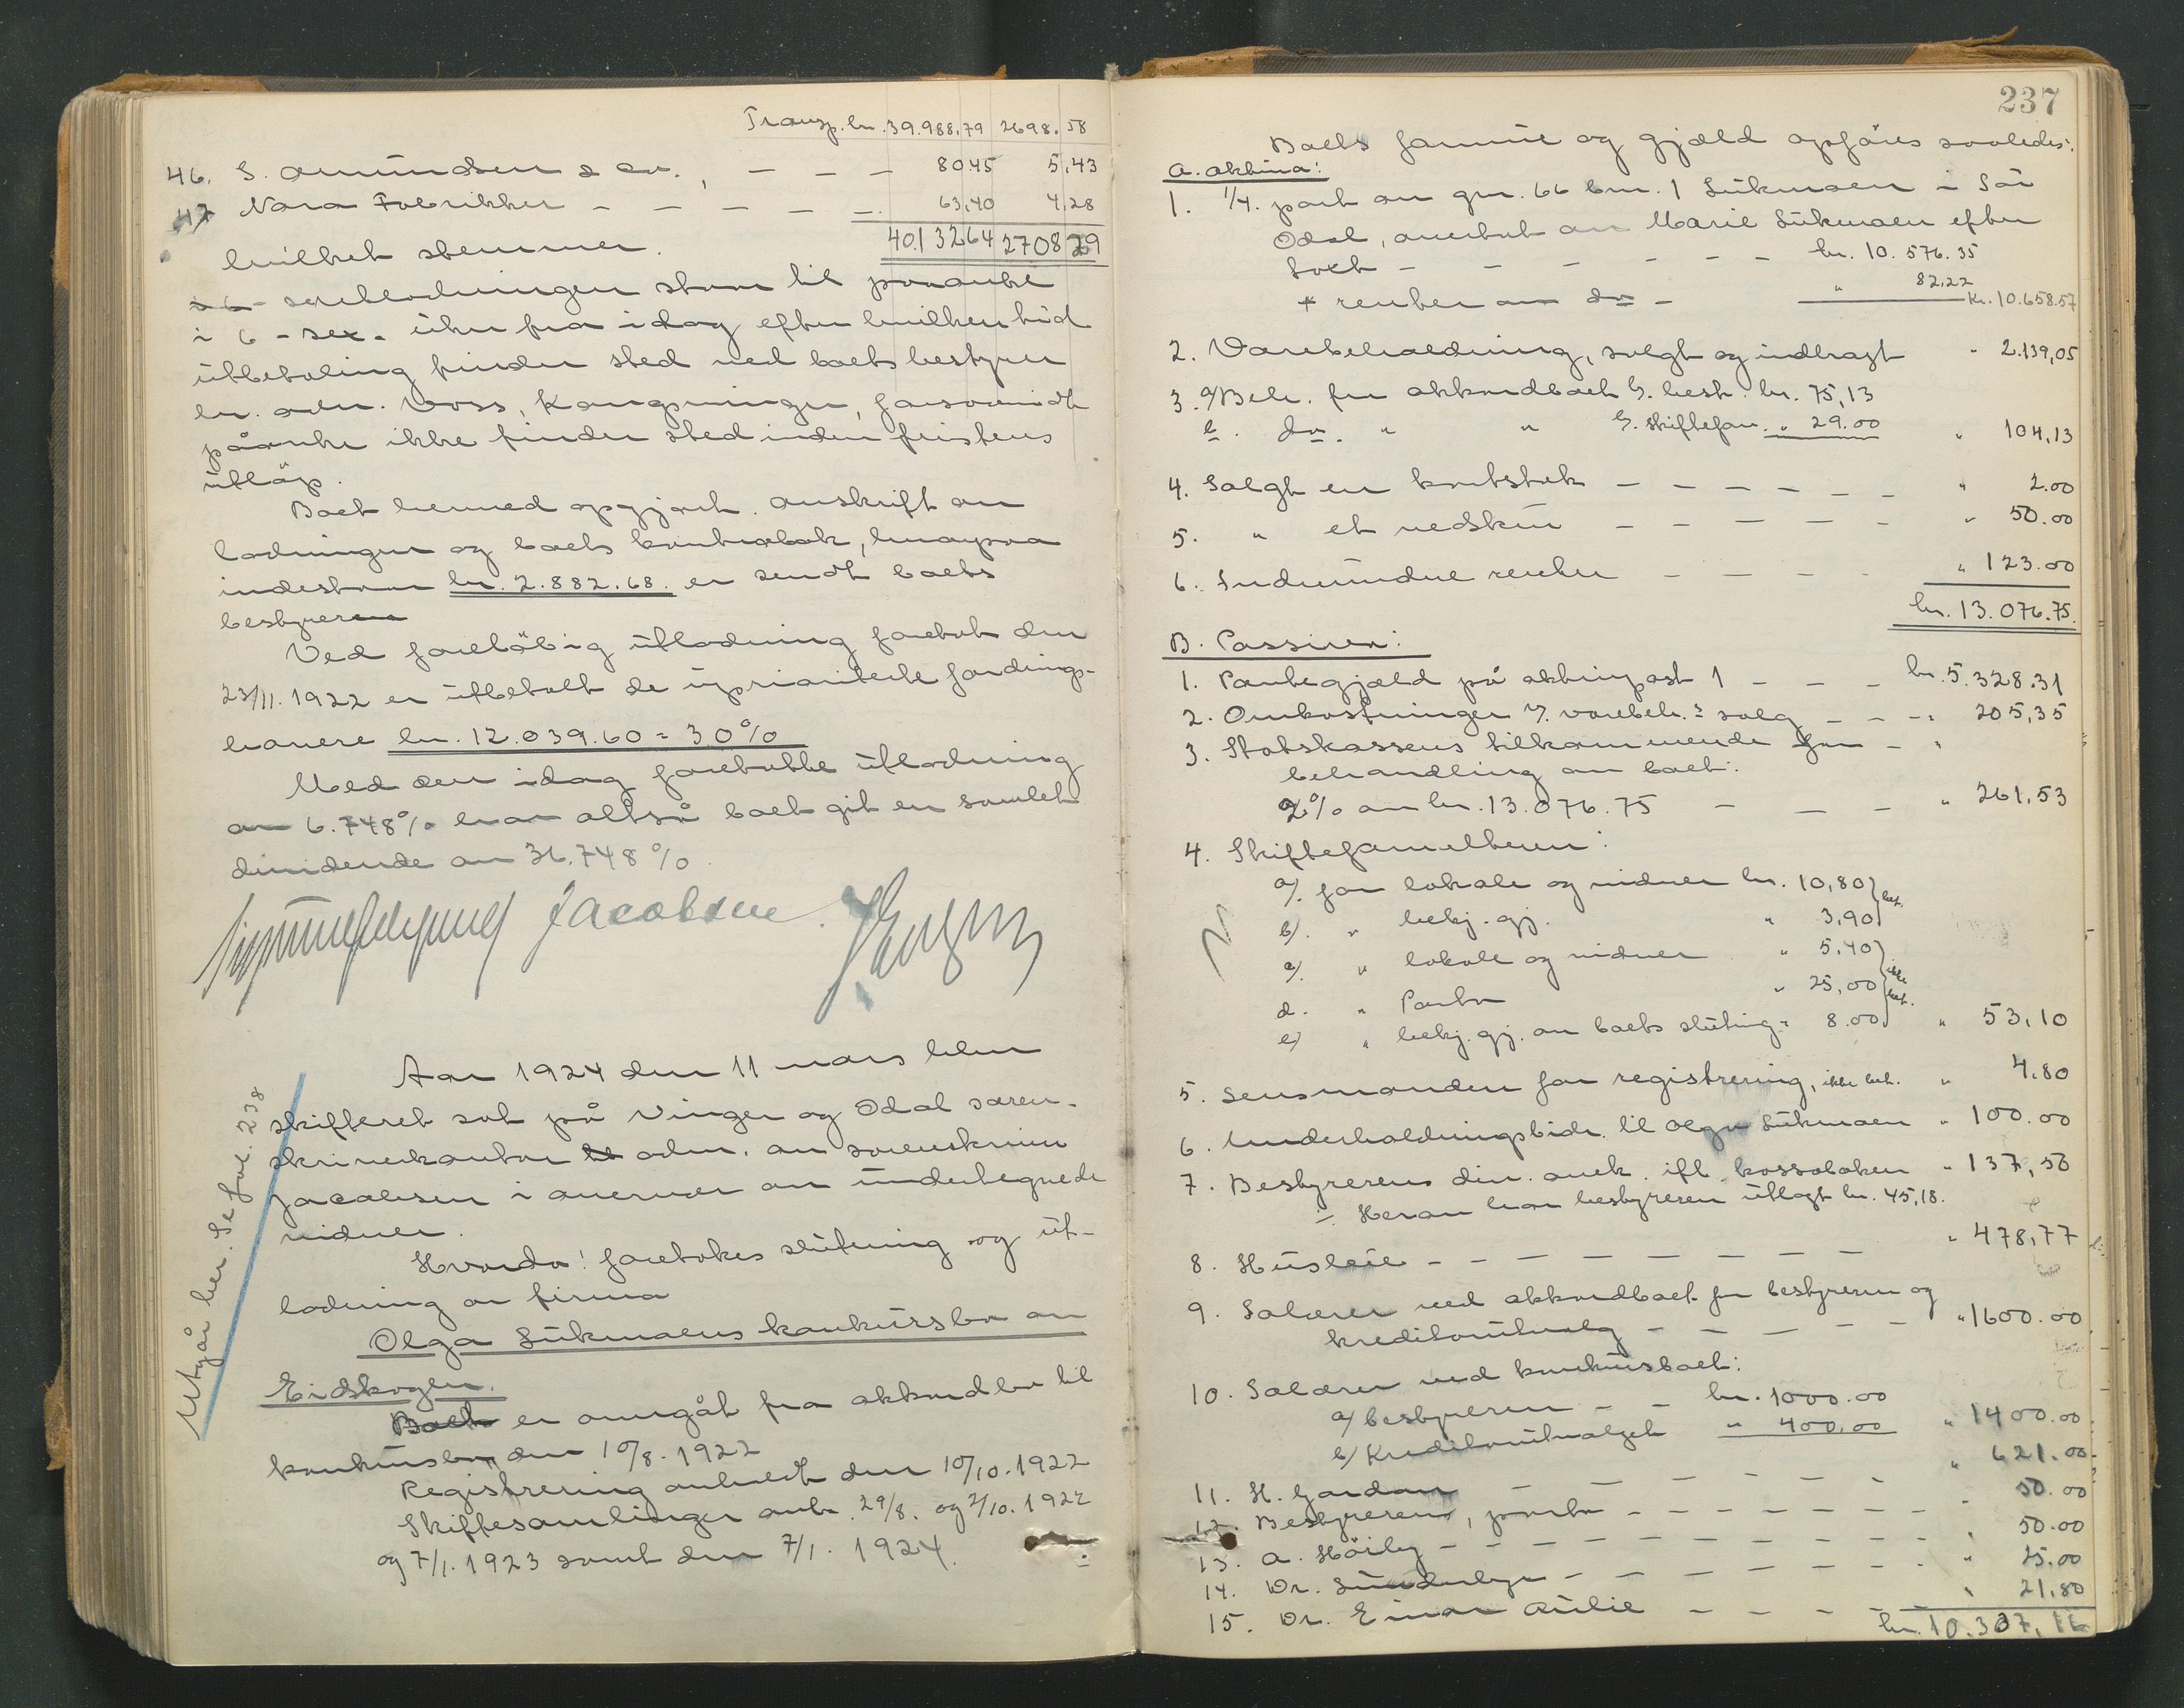 Transp. kr. 39.988,79 2698.58
46. S. Amundsen & Co., – – – 80.45 5,43
47 Nora Fabrikker – – – – – 63,40 4,28
hvilket stemmer. 40.132.64 2708 29
Utlodningen staar til paaanke
i 6 - sex - uker fra idag efter hvilken tid
utbetaling finder sted ved boets bestyrer
hr. adv. Voss, Kongsvinger, forsaavidt
påanke ikke finder sted inden fristens
utløp.
Boet hermed opgjort. Avskrift av
lodningen og boets kontrabok, hvorpaa
indestaar kr. 2.882.68. er sendt boets
bestyrer
Ved foreløbig utlodning foretat den
23/11. 1922 er utbetalt de uprioriterte fordrings-
havere kr. 12.039.60 = 30%
Med den idag foretatte utlodning
av 6.748% har altså boet git en samlet
dividende av 36.748%.
Jacobsen.
Utgår her. Se fol. 238
Aar 1924 den 11 mars blev
skifteret sat på Vinger og Odal soren-
skriverkontor adm. av sorenskriver
Jacobsen i overvær av undertegnede
vidner.
Hvorda! foretokes slutning og ut-
lodning av firma
Olga Lukmoens konkursbo av
Eidskogen.
Boet er overgåt fra akkordbo til
konkursbo den 10/8. 1922
Registrering avholdt den 10/10. 1922
Skiftesamlinger avh. 29/8. og 2/10. 1922
og 7/1. 1923 samt den 7/1. 1924.
237
Boets formue og gjæld opføres saaledes:
A. Aktiva:
1. 1/4. part av gnr. 66 bnr. 1 Lukmoen i Sør
Odal, overtat av Marie Lukmoen efter
takst – – – – – – kr. 10.576.35
+ renter av do – " 82,22 kr. 10.658.57
2. Varebeholdning, solgt og indbragt " 2.139,05
3. a/ Beh. fra akkordboet h. best. kr. 75,13
b. do. " " h. skiftefor. " 29.00 " 104,13
4. Solgt en – – – – – – " 2.00
5. " et vedskur – – – – – " 50.00
6. Indvundne renter – – – – " 123.00
kr. 13.076.75.
B. Passiva:
1. Pantegjæld på aktivpost 1 – – – kr. 5.328.31
2. Omkostninger v. varebeh.s salg – – – " 205,35
3. Statskassens tilkommende for – "
behandling av boet:
2% av kr. 13.076.75 – – – " 261,53
4. Skifteforvalteren:
a/. for lokale og vidner kr. 10,80 } bet.
b/. " bekj. gj. " 3,90
c/. " lokale og vidner " 5,40 } ikke bet.
d. " Porto " 25,00
e/ " bekj. gj. av boets slutning " 8.00 " 53,10
5. Lensmanden for registrering, ikke bet. " 4.80
6. Underholdningsbidr. til Olga Lukmoen " 100.00
7. Bestyrerens div. omk. ifl. kassaboken " 137,50
÷ Herav har bestyreren utlagt kr. 45,18.
8. Husleie – – – – – – – " 478,77
9. Salærer ved akkordboet for bestyreren og
kreditorutvalg – – – – – " 1600.00
10. Salærer ved konkursboet:
a/ bestyreren – – kr. 1000.00
b/ Kreditorutvalget " 400,00 " 1400.00
11. H. Gordon – – – – – " 621.00
12. Bestyreren, porto – – – – – – – " 50.00
13. A. Høiby – – – – – – – – – " 50.00
14. Dr. – – – – – – " 25.00
15. Dr. Einar Aulie – – – – – " 21,80
kr. 10.337,16